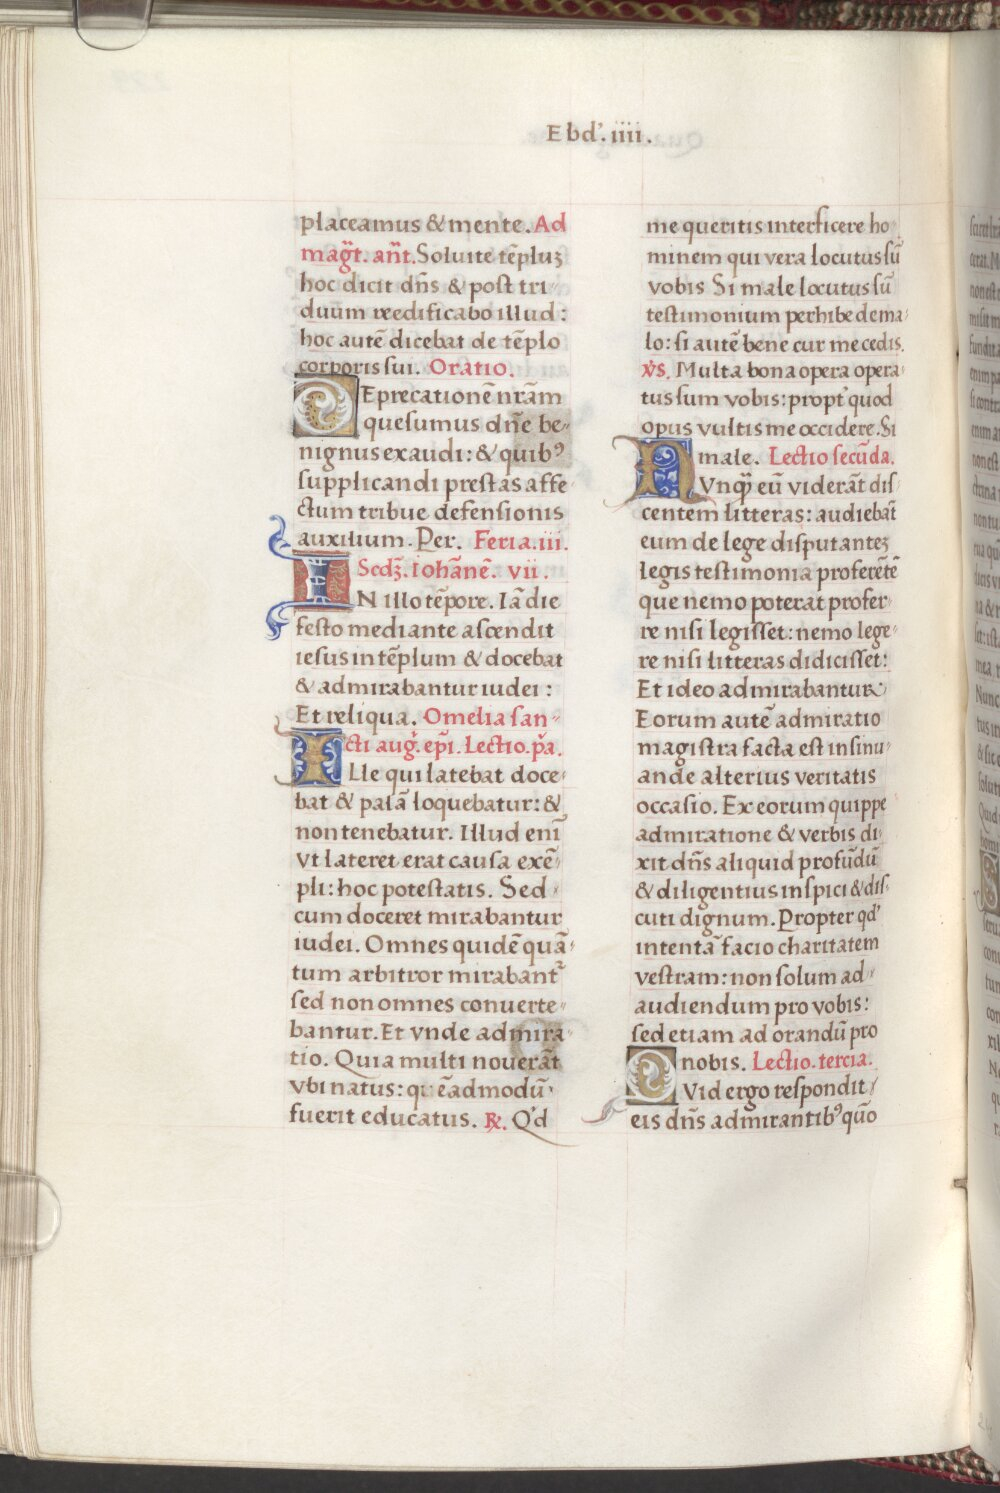 Ebd'. iiii.
placeamus & mente. Ad
mag̃t. añt. Soluite tẽpluʒ
hoc dicit dñs & post tri-
duum reedificabo illud:
hoc autẽ dicebat de tẽplo
corporis sui. Oratio.
Eprecationẽ nrãm
quesumus dñe be-
nignus exaudi: & quibꝰ
supplicandi prestas affe
ctum tribue defensionis
auxilium. Per. Feria. iii.
Scdʒ. Iohãnẽ. vii.
IN illo tẽpore. Iã die
festo mediante ascendit
iesus in tẽplum & docebat
& admirabantur iudei:
Et reliqua. Omelia san-
cti aug̃. ep̃i. Lectio. p̃a.
ILle qui latebat doce-
bat & palã loquebatur: &
non tenebatur. Illud eni᷈
vt lateret erat causa exẽ-
pli: hoc potestatis. Sed
cum doceret mirabantur
iudei. Omnes quidẽ quã-
tum arbitror mirabant᷑
sed non omnes conuerte-
bantur. Et vnde admira-
tio. Quia multi nouerãt
vbi natus: quẽadmodũ
fuerit educatus. ℟. Q'd
me queritis interficere ho-
minem qui vera locutus sũ
vobis Si male locutus sũ
testimonium perhibe de ma-
lo: si autẽ bene cur me cedis.
v̓s. Multa bona opera opera-
tus sum vobis: propt' quod
opus vultis me occidere. Si
male. Lectio secũda.
NVnqͥ eũ viderãt dis-
centem litteras: audiebãt
eum de lege disputanteʒ
legis testimonia proferẽtẽ
que nemo poterat profer-
re nisi legisset: nemo lege-
re nisi litteras didicisset:
Et ideo admirabantur
Eorum autẽ admiratio
magistra facta est insinu-
ande alterius veritatis
occasio. Ex eorum quippe
admiratione & verbis di-
xit dñs aliquid profũdũ
& diligentius inspici & dis-
cuti dignum. Propter qd'
intentã facio charitatem
vestram: non solum ad
audiendum pro vobis:
sed etiam ad orandũ pro
nobis. Lectio. tercia.
QVid ergo respondit
eis dñs admirantibꝰ quõ